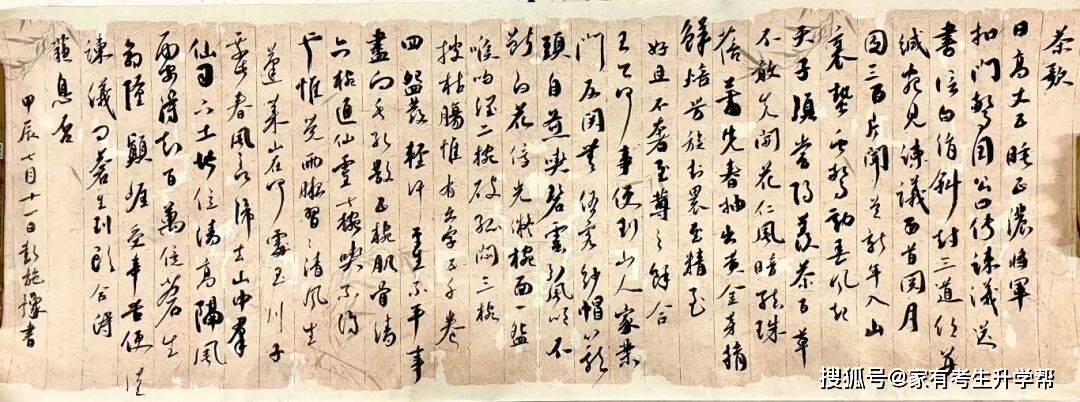 茶歌
日高丈五睡正濃將軍
扣門驚周公口傳諫議送
書信白絹斜封三道印開
緘宛見諫議面首閱月
團三百片聞道新年入山
裏蟄蟲驚動春風起
天子須嘗陽羨茶百草
不敢先開花仁風暗結珠
蓓蕾先春抽出黃金芽摘
鮮焙芳旋封裹至精至
好且不奢至尊之餘合
王公何事便到山人家柴
門反關無俗客紗帽籠
頭自煎喫碧雲引風吹不
斷白花浮光凝椀面一盌
喉吻潤二椀破孤悶三椀
搜枯腸惟有文字五千卷
四盌發輕汗平生不平事
盡向毛孔散五椀肌骨清
六椀通仙靈七椀喫不得
也惟覺兩腋習習清風生
蓬萊山在何處玉川子
乘春風欲歸去山中羣
仙司下土地位清高隔風
雨安得知百萬億蒼生
命墮顛崖受辛苦便從
諫議問蒼生到頭合得
蘇息否
甲辰七月十一日彭施豫書
搜狐号@家有考生升学帮